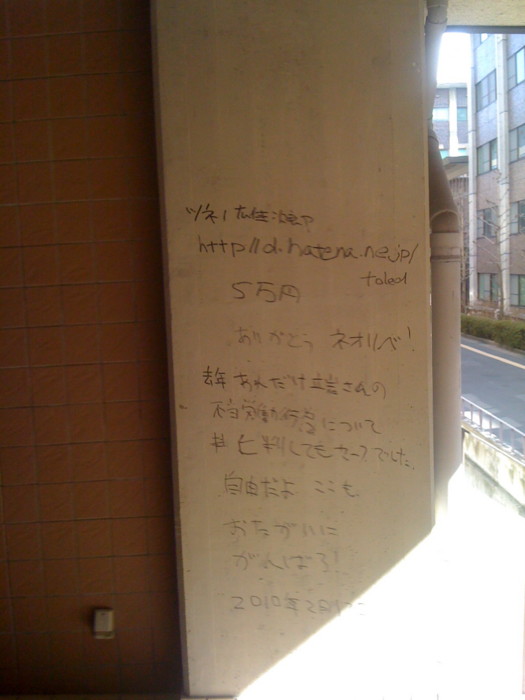 ツネノ
http://d.hatena.ne.jp/
toled
5万円
ありがとう ネオリベ!
去年 あれだけ立言さんの
不当労働行為について
批判してもセーフでした。
自由だよ ここも
おたがいに
がんばろ!
2010年2月